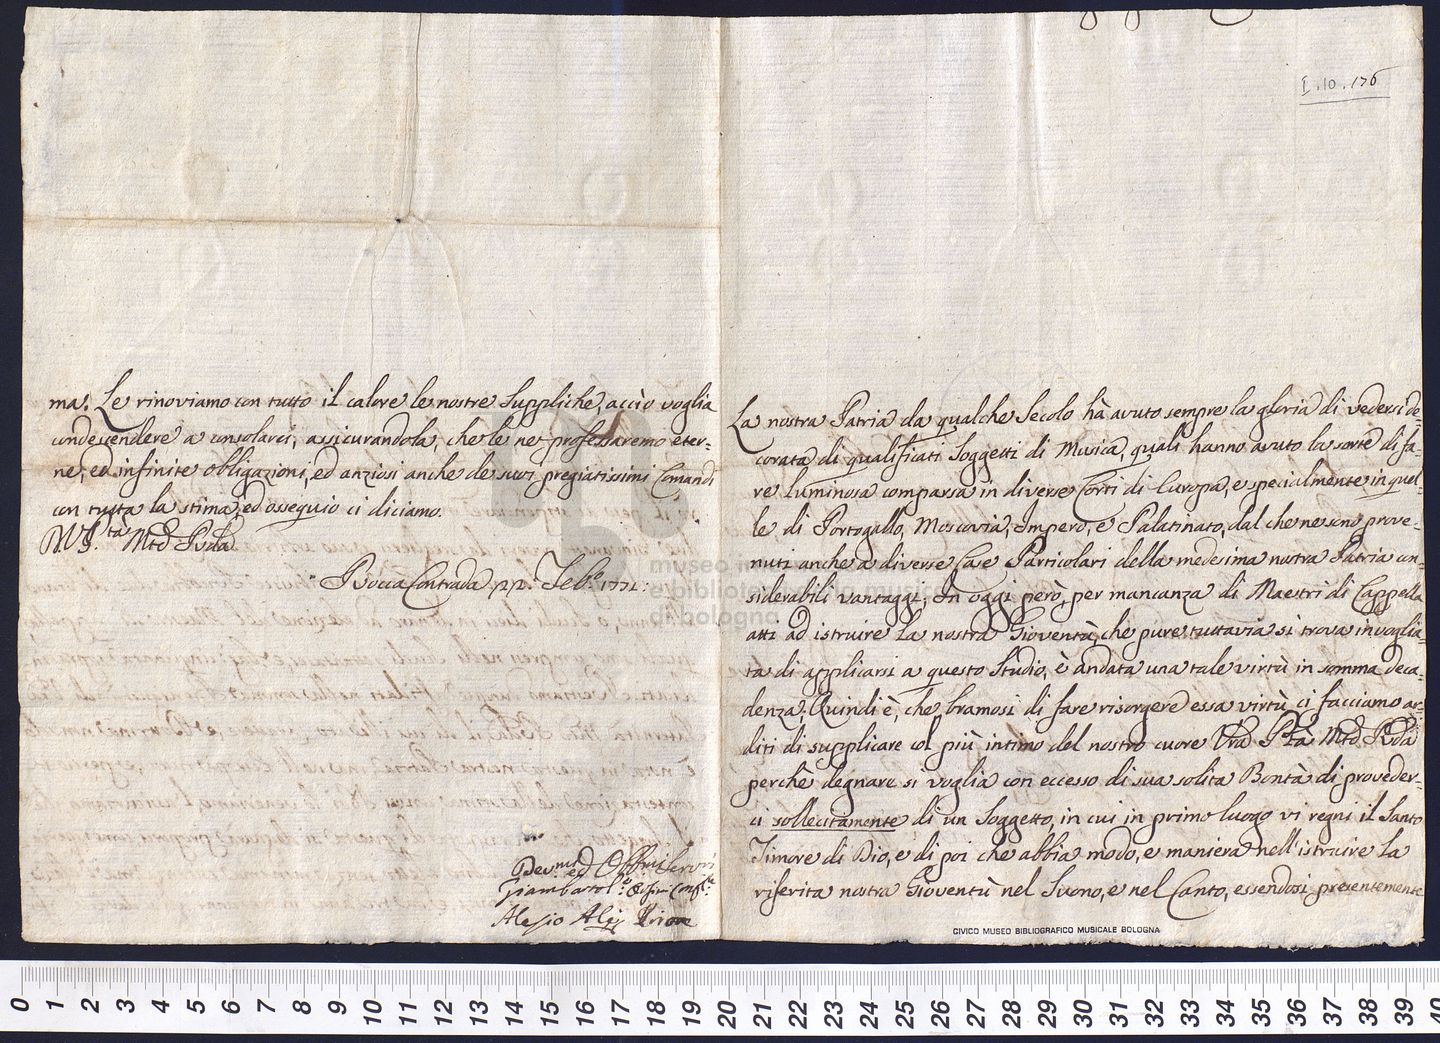 I.10.176
La nostra Patria da qualche Secolo hà avuto sempre la gloria di vedersi de-
corata di qualificati Soggetti di Musica, quali hanno avuto la sorte di fa-
re luminosa comparsa in diverse Corti di Europa, e specialmente in quel-
le di Portogallo, Moscovia, Impero, e Palatinato, dal che ne sono prove-
nuti anche a diverse Case Particolari della medesima nostra Patria con-
siderabili vantaggi, In oggi però, per mancanza di Maestri di Cappella
atti ad istruire la nostra Gioventù, che pure tuttavia si trova invoglia-
ta di applicarsi a questo Studio, è andata una tale virtù in somma deca-
denza, Quindi è, che bramosi di fare risorgere essa virtù ci facciamo ar-
diti di supplicare col più intimo del nostro cuore Vrā P.tà Mtō Rvdā
perchè degnare si voglia con eccesso di sua solita Bontà di proveder-
ci sollecitamente di un Soggetto, in cui in primo luogo vi regni il Santo
Timore di Dio, e di poi che abbia modo, e maniera nell'istruire la
riferita nostra Gioventù nel Suono, e nel Canto, essendosi presentemente
CIVICO MUSEO BIBLIOGRAFICO MUSICALE BOLOGNA
ma. Le rinoviamo con tutto il calore le nostre Suppliche, acciò voglia
condescendere a consolarci, assicurandola, che le ne professaremo eter-
ne, ed infinite obligazioni, ed anziosi anche de suoi pregiatissimi Comandi
con tutta la stima, ed ossequio ci diciamo.
Mtō Rvdā
Rocca Contrada 22. Feb.o 1771.
Dev.mi ed Obb̄mi Servri
Giambatt.
Alesio Alej Priore
museo in
e bibliote
di bologna
0 1 2 3 4 5 6 7 8 9 10 11 12 13 14 15 16 17 18 19 20 21 22 23 24 25 26 27 28 29 30 31 32 33 34 35 36 37 38 39 40